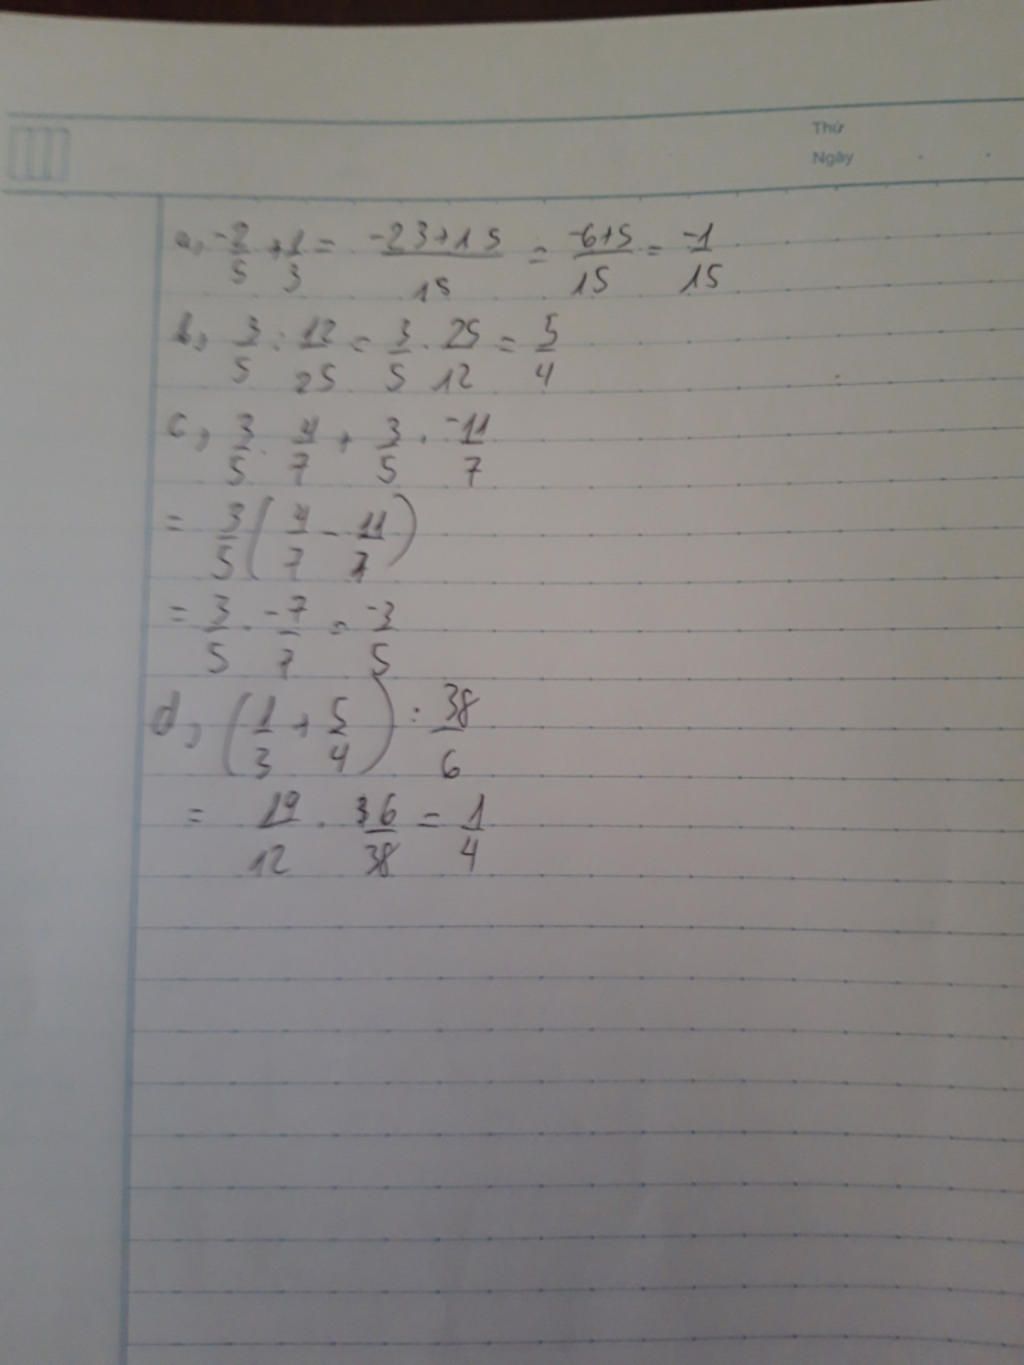 Thứ
Ngày
a, -2/5 + 1/3 = -2 3 + 1 5 / 15 = -6+5/15 = -1/15
b, 3/5 : 12/25 = 3/5 . 25/12 = 5/4
c, 3/5 . 4/7 + 3/5 . -11/7
= 3/5 ( 4/7 - 11/7 )
= 3/5 . -7/7 = -3/5
d, ( 1/3 + 5/4 ) : 38/6
= 19/12 . 6/38 = 1/4